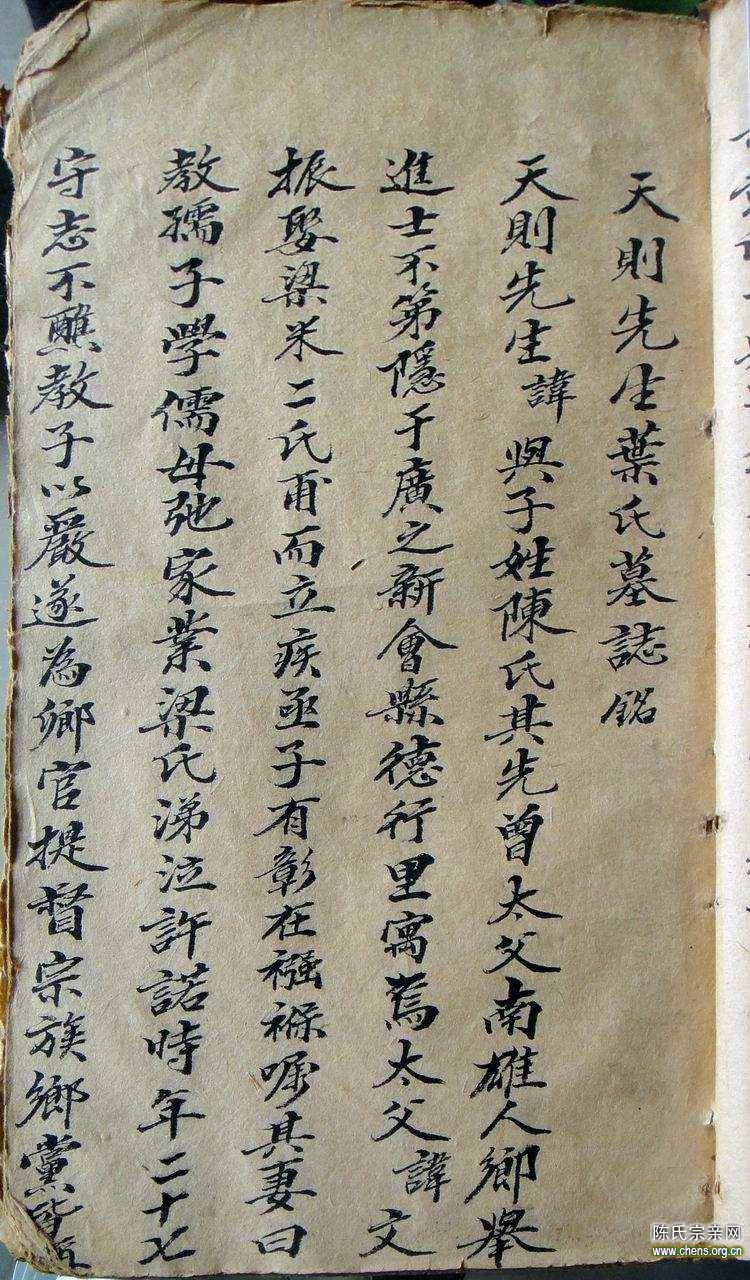 天則先生葉氏墓誌銘
天則先生諱興子姓陳氏其先曾太父南雄人鄉舉
進士不第隱于廣之新會縣德行里寓焉太父諱文
振娶梁米二氏甫而立疾亟子有彰在襁褓嘱其妻曰
教孺子學儒毋弛家業梁氏涕泣許諾時年二十七
守志不醮教子以嚴遂為鄉官提督宗族鄉黨皆
陈氏宗亲网
www.chens.org.cn